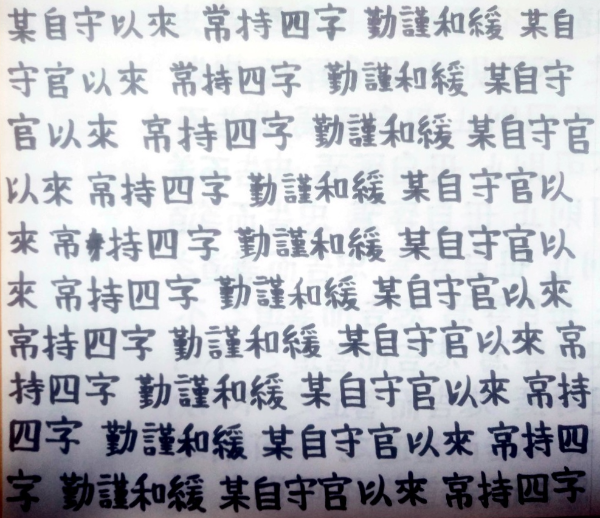 某自守以來 常持四字 勤謹和緩 某自
守官以來 常持四字 勤謹和緩 某自守
官以來 常持四字 勤謹和緩 某自守官
以來 常持四字 勤謹和緩 某自守官以
來 常持四字 勤謹和緩 某自守官以
來 常持四字 勤謹和緩 某自守官以來
常持四字 勤謹和緩 某自守官以來 常
持四字 勤謹和緩 某自守官以來 常持
四字 勤謹和緩 某自守官以來 常持四
字 勤謹和緩 某自守官以來 常持四字